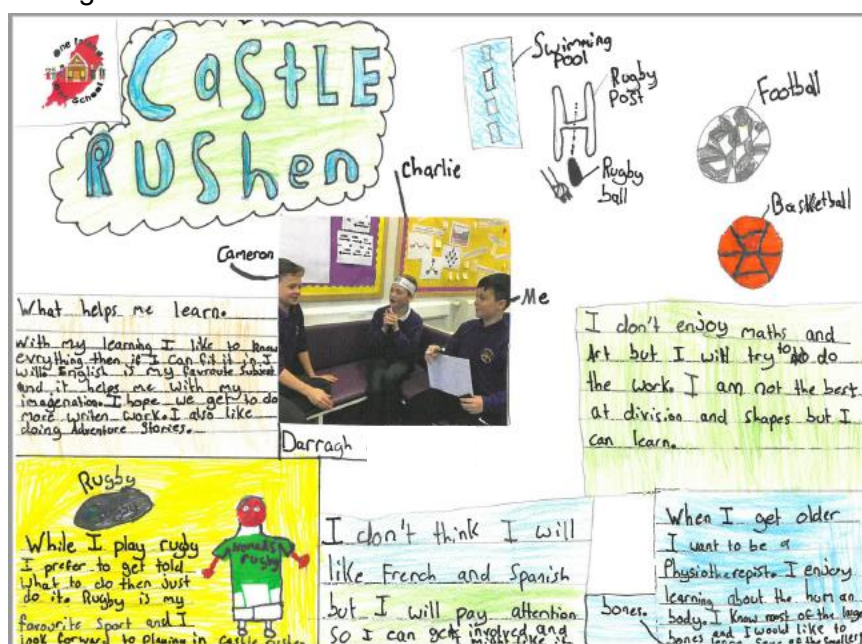 One Island
One School
CaStLE
RUShen
Swimming
Pool
Rugby
Post
Rugby
ball
Football
Basketball
Charlie
Cameron
Me
What helps me learn.
With my learning I like to know
evrything then if I can fit it in I
will. English is my favroute Subject
and it helps me with my
imagenation. I hope we get to do
more writen work. I also like
doing Adventure Stories.
Darragh
I don't enjoy maths and
Art but I will try to do
the work. I am not the best
at division and shapes but I
can learn.
Rugby
While I play rugby
I prefer to get told
what to do then just
do it. Rugby is my
favourite Sport and I
look forward to playing in castle rushen
Nomads
rugby
I don't think I will
like French and Spanish
but I will pay attention
So I can get involved and
bones.
When I get older
I want to be a
Physiotherepist. I enjoy
learning about the human
body. I know most of the large
bones and I would like to